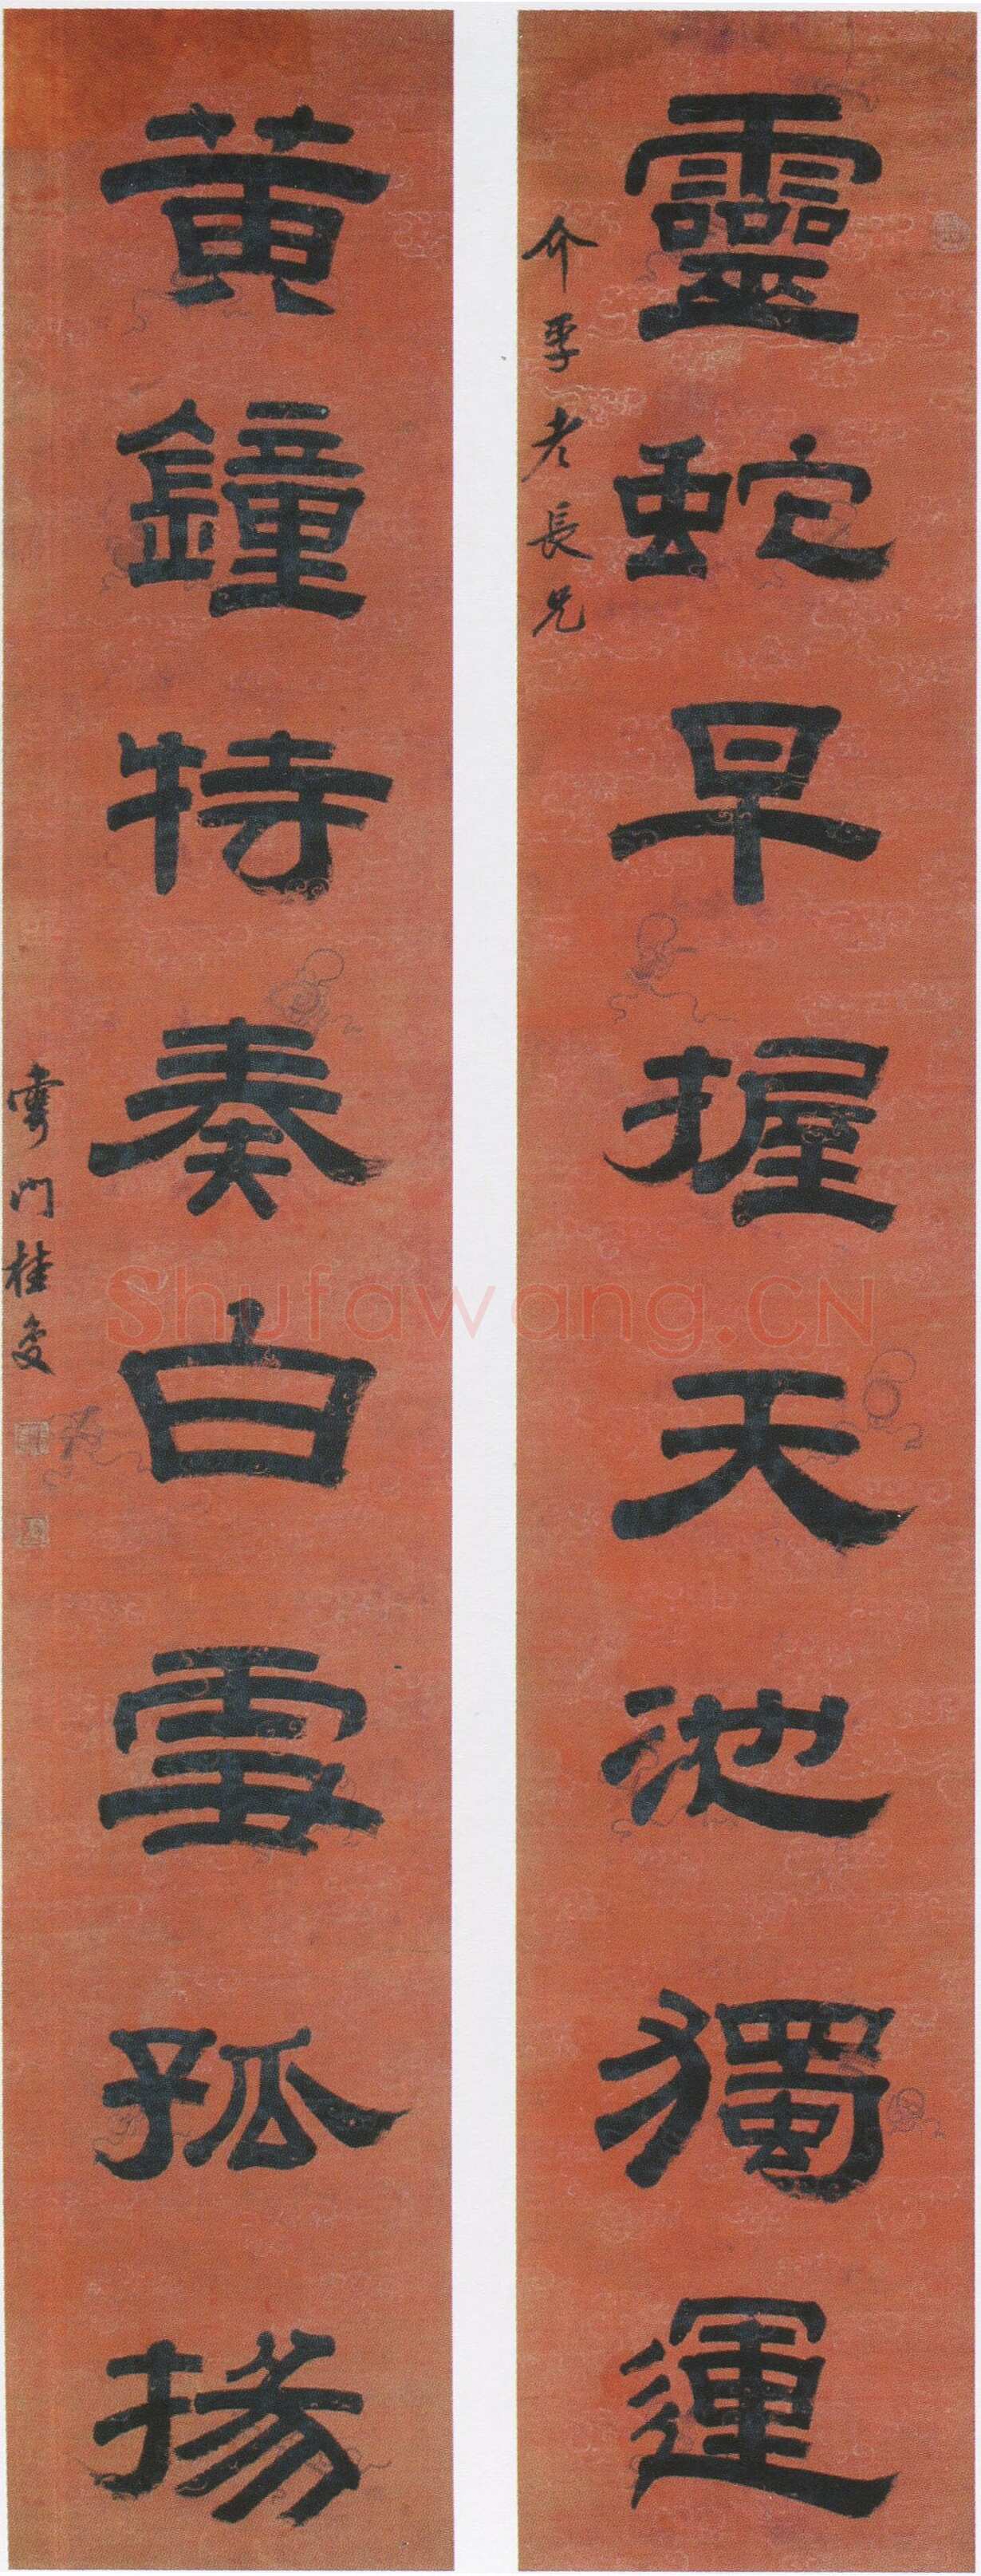 靈蛇早握天池獨運
介孚老長兄
黃鐘特奏白雲孤揚
雩門桂复
Shufawang.CN